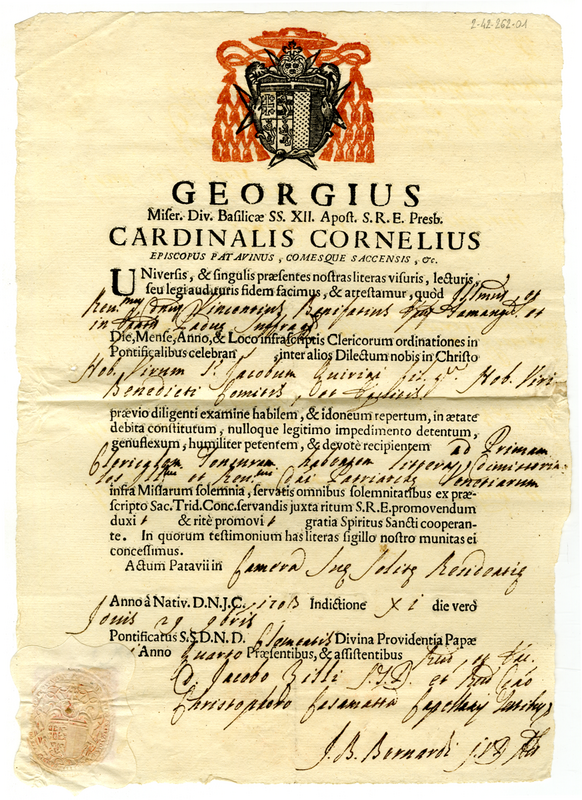 2-42-262-01
GEORGIUS
Miser. Div. Basilicæ SS. XII. Apost. S. R. E. Presb.
CARDINALIS CORNELIUS
EPISCOPUS PATAVINUS, COMESQUE SACCENSIS, &c.
UNiversis, & singulis præsentes nostras literas visuris, lecturis,
seu legi audituris fidem facimus, & attestamur, quòd et
Vincentius et
in
Die, Mense, Anno, & Loco infrascriptis Clericorum ordinationes in
Pontificalibus celebran inter alios Dilectum nobis in Christo
Nob. Virum Jacobum Quirini Nob. Viri
Benedicti Comitis,
prævio diligenti examine habilem, & idoneum repertum, in ætate
debita constitutum, nulloque legitimo impedimento detentum,
genuflexum, humiliter petentem, & devotè recipientem ad Primam
Clericalem Tonsuram
et Patriarchæ Venetiarum
infra Missarum solemnia, servatis omnibus solemnitatibus ex præ-
scripto Sac. Trid. Conc. servandis juxta ritum S. R. E. promovendum
duxit & ritè promovit gratia Spiritus Sancti cooperan-
te. In quorum testimonium has literas sigillo nostro munitas ei
concessimus.
Actum Patavii in Camera Solitæ
Anno à Nativ. D. N. J. C. 1703 Indictione XI die verò
Jovis 29
Pontificatus S. S. D. N. D. Clementis Divina Providentia Papæ
Anno Quarto Præsentibus, & assistentibus
D. Jacobo et
Christophoro Casamatta
J. B. Bernardi